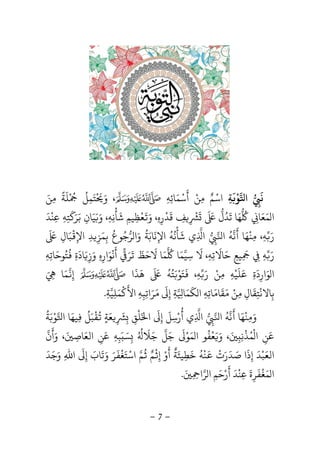 نبي التوبة
نَبِيُّ التَّوْبَةِ اسْمٌ مِنْ أَسْمَائِهِ ﷺ، وَيَحْتَمِلُ جُمْلَةً مِنَ
المَعَانِي كُلُّهَا تَدُلُّ عَلَى تَشْرِيفِ قَدْرِهِ، وَتَعْظِيمِ شَأْنِهِ، وَبَيَانِ بَرَكَتِهِ عِنْدَ
رَبِّهِ، مِنْهَا أَنَّهُ النَّبِيُّ الَّذِي شَأْنُهُ الإِنَابَةُ وَالرُّجُوعُ بِمَزِيدِ الإِقْبَالِ عَلَى
رَبِّهِ فِي جَمِيعِ حَالَاتِهِ، لَا سِيَّمَا كُلَّمَا لَاحَظَ تَرَقِّيَ أَنْوَارِهِ وَزِيَادَةِ فُتُوحَاتِهِ
الوَارِدَةِ عَلَيْهِ مِنْ رَبِّهِ، فَتَوْبَتُهُ عَلَى هَذَا ﷺ إِنَّمَا هِيَ
بِالانْتِقَالِ مِنْ مَقَامَاتِهِ الكَمَالِيَّةِ إِلَى مَرَاتِبِهِ الأَكْمَلِيَّةِ.
وَمِنْهَا أَنَّهُ النَّبِيُّ الَّذِي أُرْسِلَ إِلَى الخَلْقِ بِشَرِيعَةٍ تُقْبَلُ فِيهَا التَّوْبَةُ
عَنِ المُذْنِبِينَ، وَيَعْفُو المَوْلَى جَلَّ جَلَالُهُ بِسَبَبِهِ عَنِ العَاصِينَ، وَأَنَّ
العَبْدَ إِذَا صَدَرَتْ عَنْهُ خَطِيئَةٌ أَوْ إِثْمٌ ثُمَّ اسْتَغْفَرَ وَتَابَ إِلَى اللهِ وَجَدَ
المَغْفِرَةَ عِنْدَ أَرْحَمِ الرَّاحِمِينَ.
- 7 -